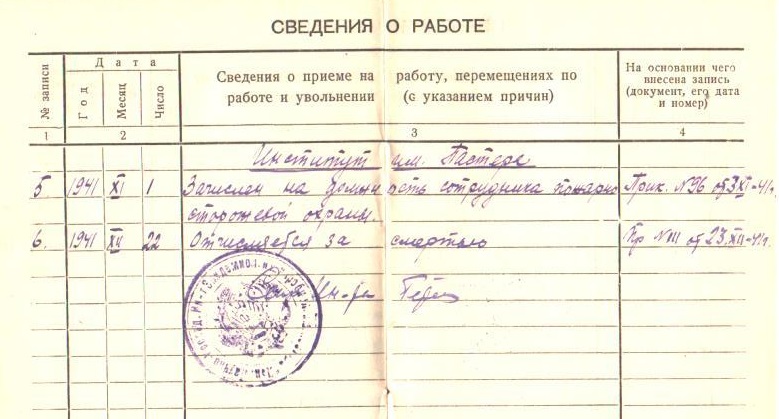 СВЕДЕНИЯ О РАБОТЕ
№ записи
Дата
Год
Месяц
Число
Сведения о приеме на работу, перемещениях по
работе и увольнении (с указанием причин)
На основании чего
внесена запись
(документ, его дата
и номер)
1 2 3 4
Институт им. Пастера
5 1941 XI 1 Зачислен на должность сотрудника пожарно Прик. №96 от 3/XI-41г.
сторожевой охраны.
6. 1941 XII 22 Отчисляется за смертью Пр №111 от 23.XII-41г.